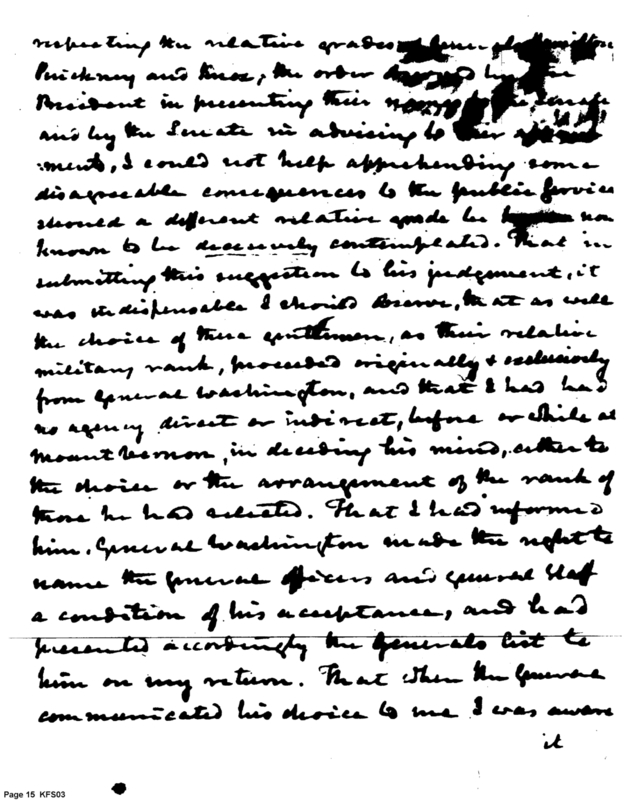 respecting the relative grades Generals Hamilton
Pinckney and Knox, the order by the
President in presenting their names to the Senate
and by the Senate in advising to their appoint
ments, I could not help apprehending some
disagreeable consequences to the public Service
should a different relative grade be now
known to be decisively contemplated. That in
submitting this suggestion to his judgement, it
was indispensable I should observe, that as well
the choice of these gentlemen, as their relative
military rank, proceeded originally & exclusively
from General Washington, and that I had had
no agency direct or indirect, before or while at
Mount Vernon, in deciding his mind, either to
the choice or the arrangement of the rank of
those he had selected. That I had informed
him. General Washington made the right to
name the general officers and general Staff
a condition of his acceptance, and had
presented accordingly the Generals list to
him on my return. That when the General
communicated his choice to me I was aware
it
Page 15 KFS03